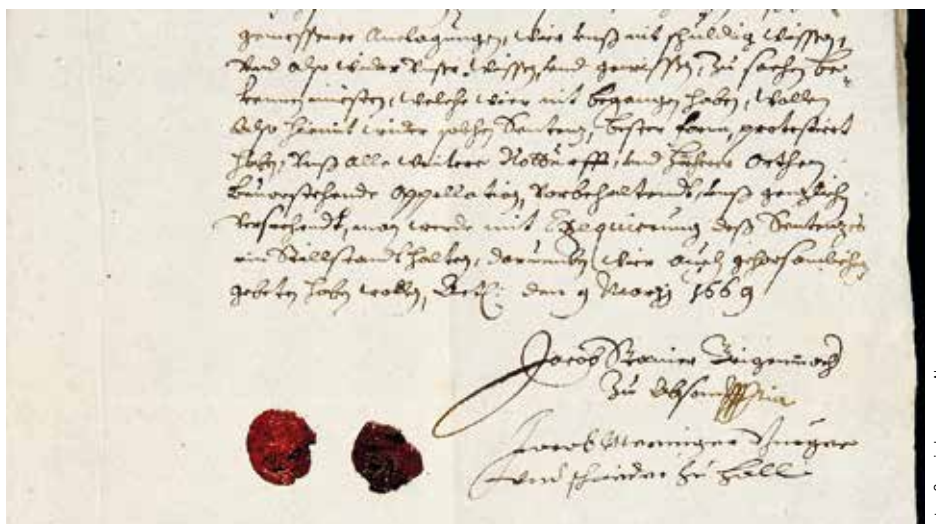 Anclagungen, wier unß nit schuldig wissen,
und also wider unser wissen, und gewissen, zu sachen be-
kennen müesten, welche wier nit begangen haben, wollen
also hiemit wider solchen Sentenz, bester form, protestiert
haben, unß alle weitere Notturfft, und höhern Orthen
bevorstehende Appellation, vorbehaltendt, unß genzlichen
versechendt, man werde mit Exequierung deß Sentenzes
ein Stillstandt halten, darumben wier auch gehorsamblichen
gebeten haben wollen, Act: den 9 Marzj 1669
Jacob Stainer Geigenmacher
zu Absom
Jacob Meringer Burger
und schneider zu Hall